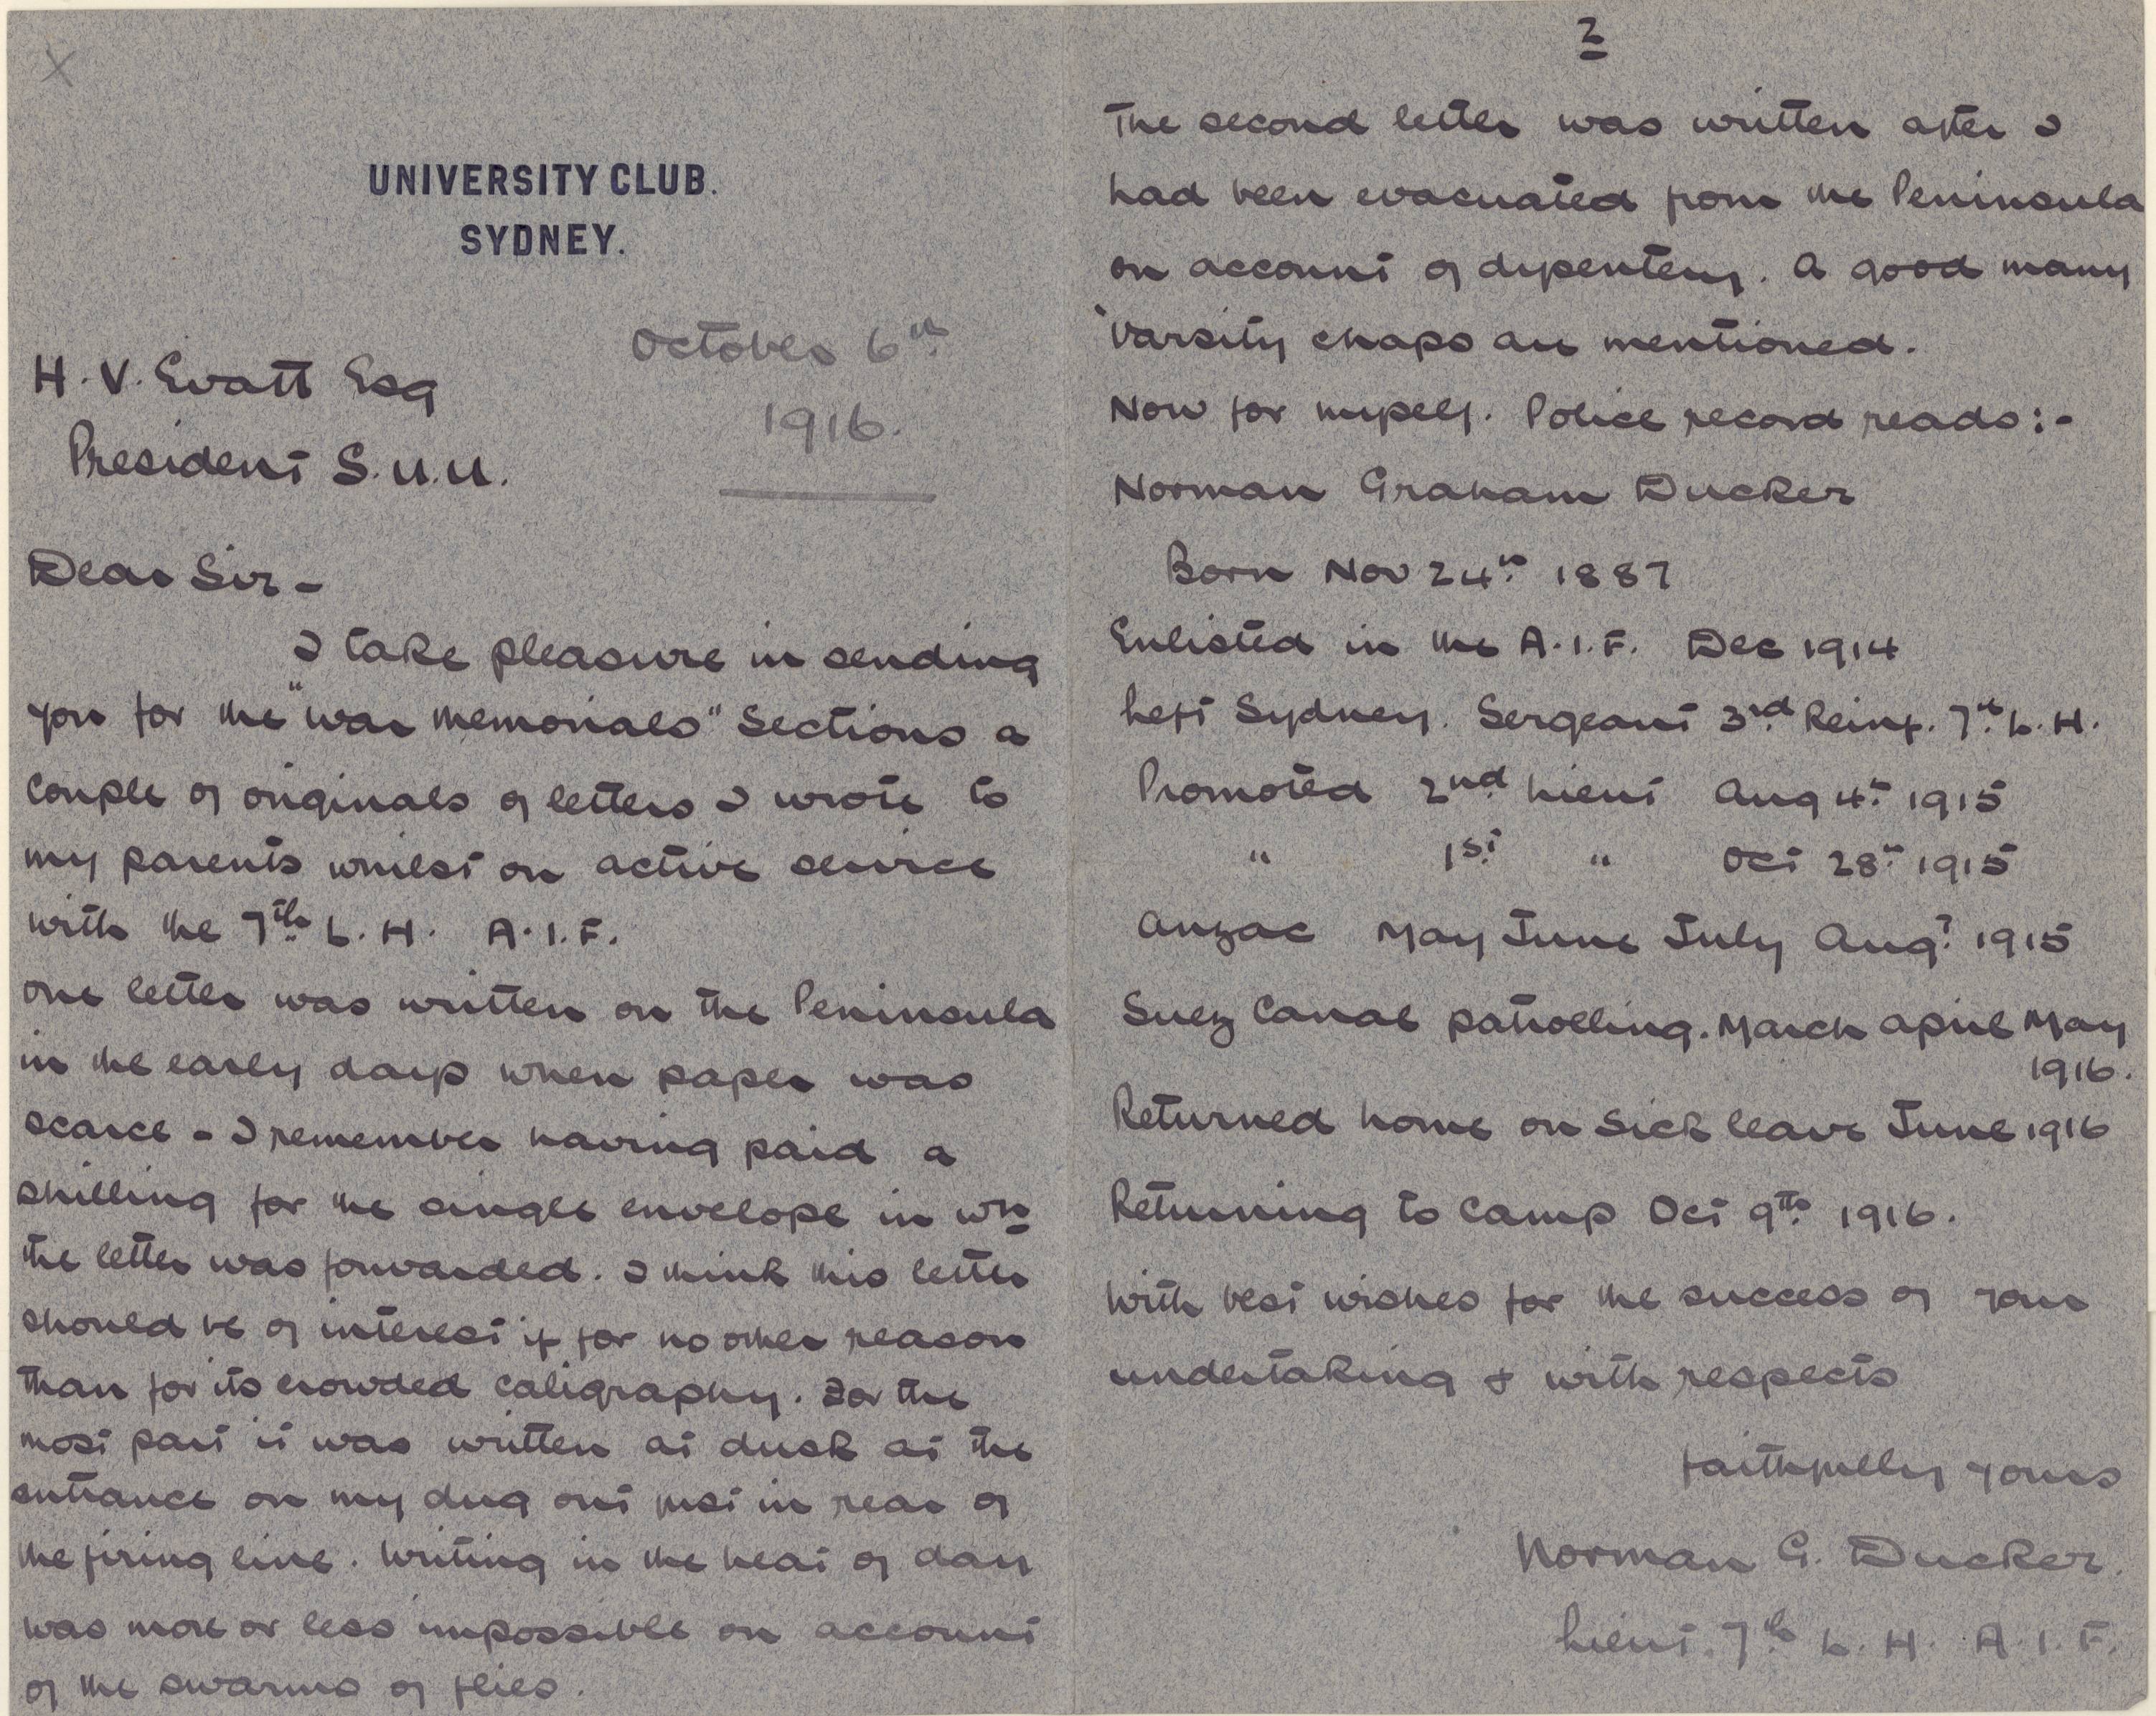 X
UNIVERSITY CLUB.
SYDNEY.
October 6th
1916.
H. V. Evatt Esq
President S.U.U.
Dear Sir -
I take pleasure in sending
you for the "War Memorials" Sections a
couple of originals of letters I wrote to
my parents whilst on active service
with the 7th L. H. A.I.F.
One letter was written on the Peninsula
in the early days when paper was
scarce - I remember having paid a
shilling for the single envelope in wh
the letter was forwarded. I think this letter
should be of interest if for no other reason
than for its crowded caligraphy. For the
most part it was written at dusk at the
entrance on my dug out just in rear of
the firing line. Writing in the heat of day
was more or less impossible on account
of the swarms of flies.
2
The second letter was written after I
had been evacuated from the Peninsula
on account of dysentery. A good many
'Varsity chaps are mentioned.
Now for myself. Police record reads:-
Norman Graham Ducker
Born Nov 24th 1887
Enlisted in the A.I.F. Dec 1914
Left Sydney. Sergeant 3rd Reinf. 7th L. H.
Promoted 2nd Lieut Aug 4th 1915
" 1st " Oct 28th 1915
Anzac May June July Augt 1915
Suez Canal patrolling. March April May
1916.
Returned home on sick leave June 1916
Returning to Camp Oct 9th 1916.
With best wishes for the success of your
undertaking & with respects
Faithfully yours
Norman G. Ducker.
Lieut. 7th L. H. A.I.F.